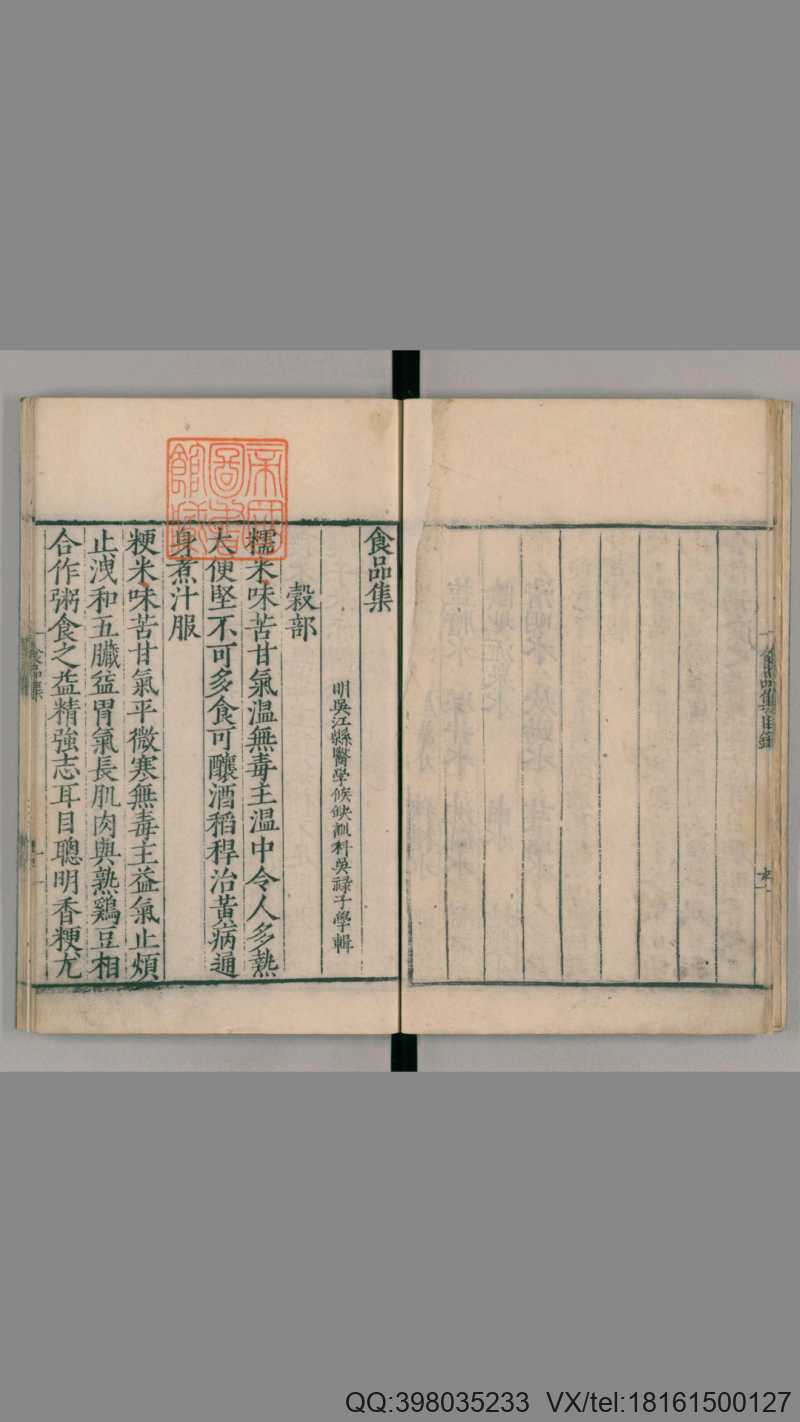 食品集
明吳江縣醫學候缺訓科吳祿子學輯
穀部
糯米味苦甘氣溫無毒主溫中令人多熱
大便堅不可多食可釀酒稻稈治黃病通
身煮汁服
粳米味苦甘氣平微寒無毒主益氣止煩
止洩和五臟益胃氣長肌肉與熟鷄豆相
合作粥食之益精強志耳目聰明香粳尤
食品集
食品集目錄
帝國圖書館藏
QQ:398035233 VX/tel:18161500127